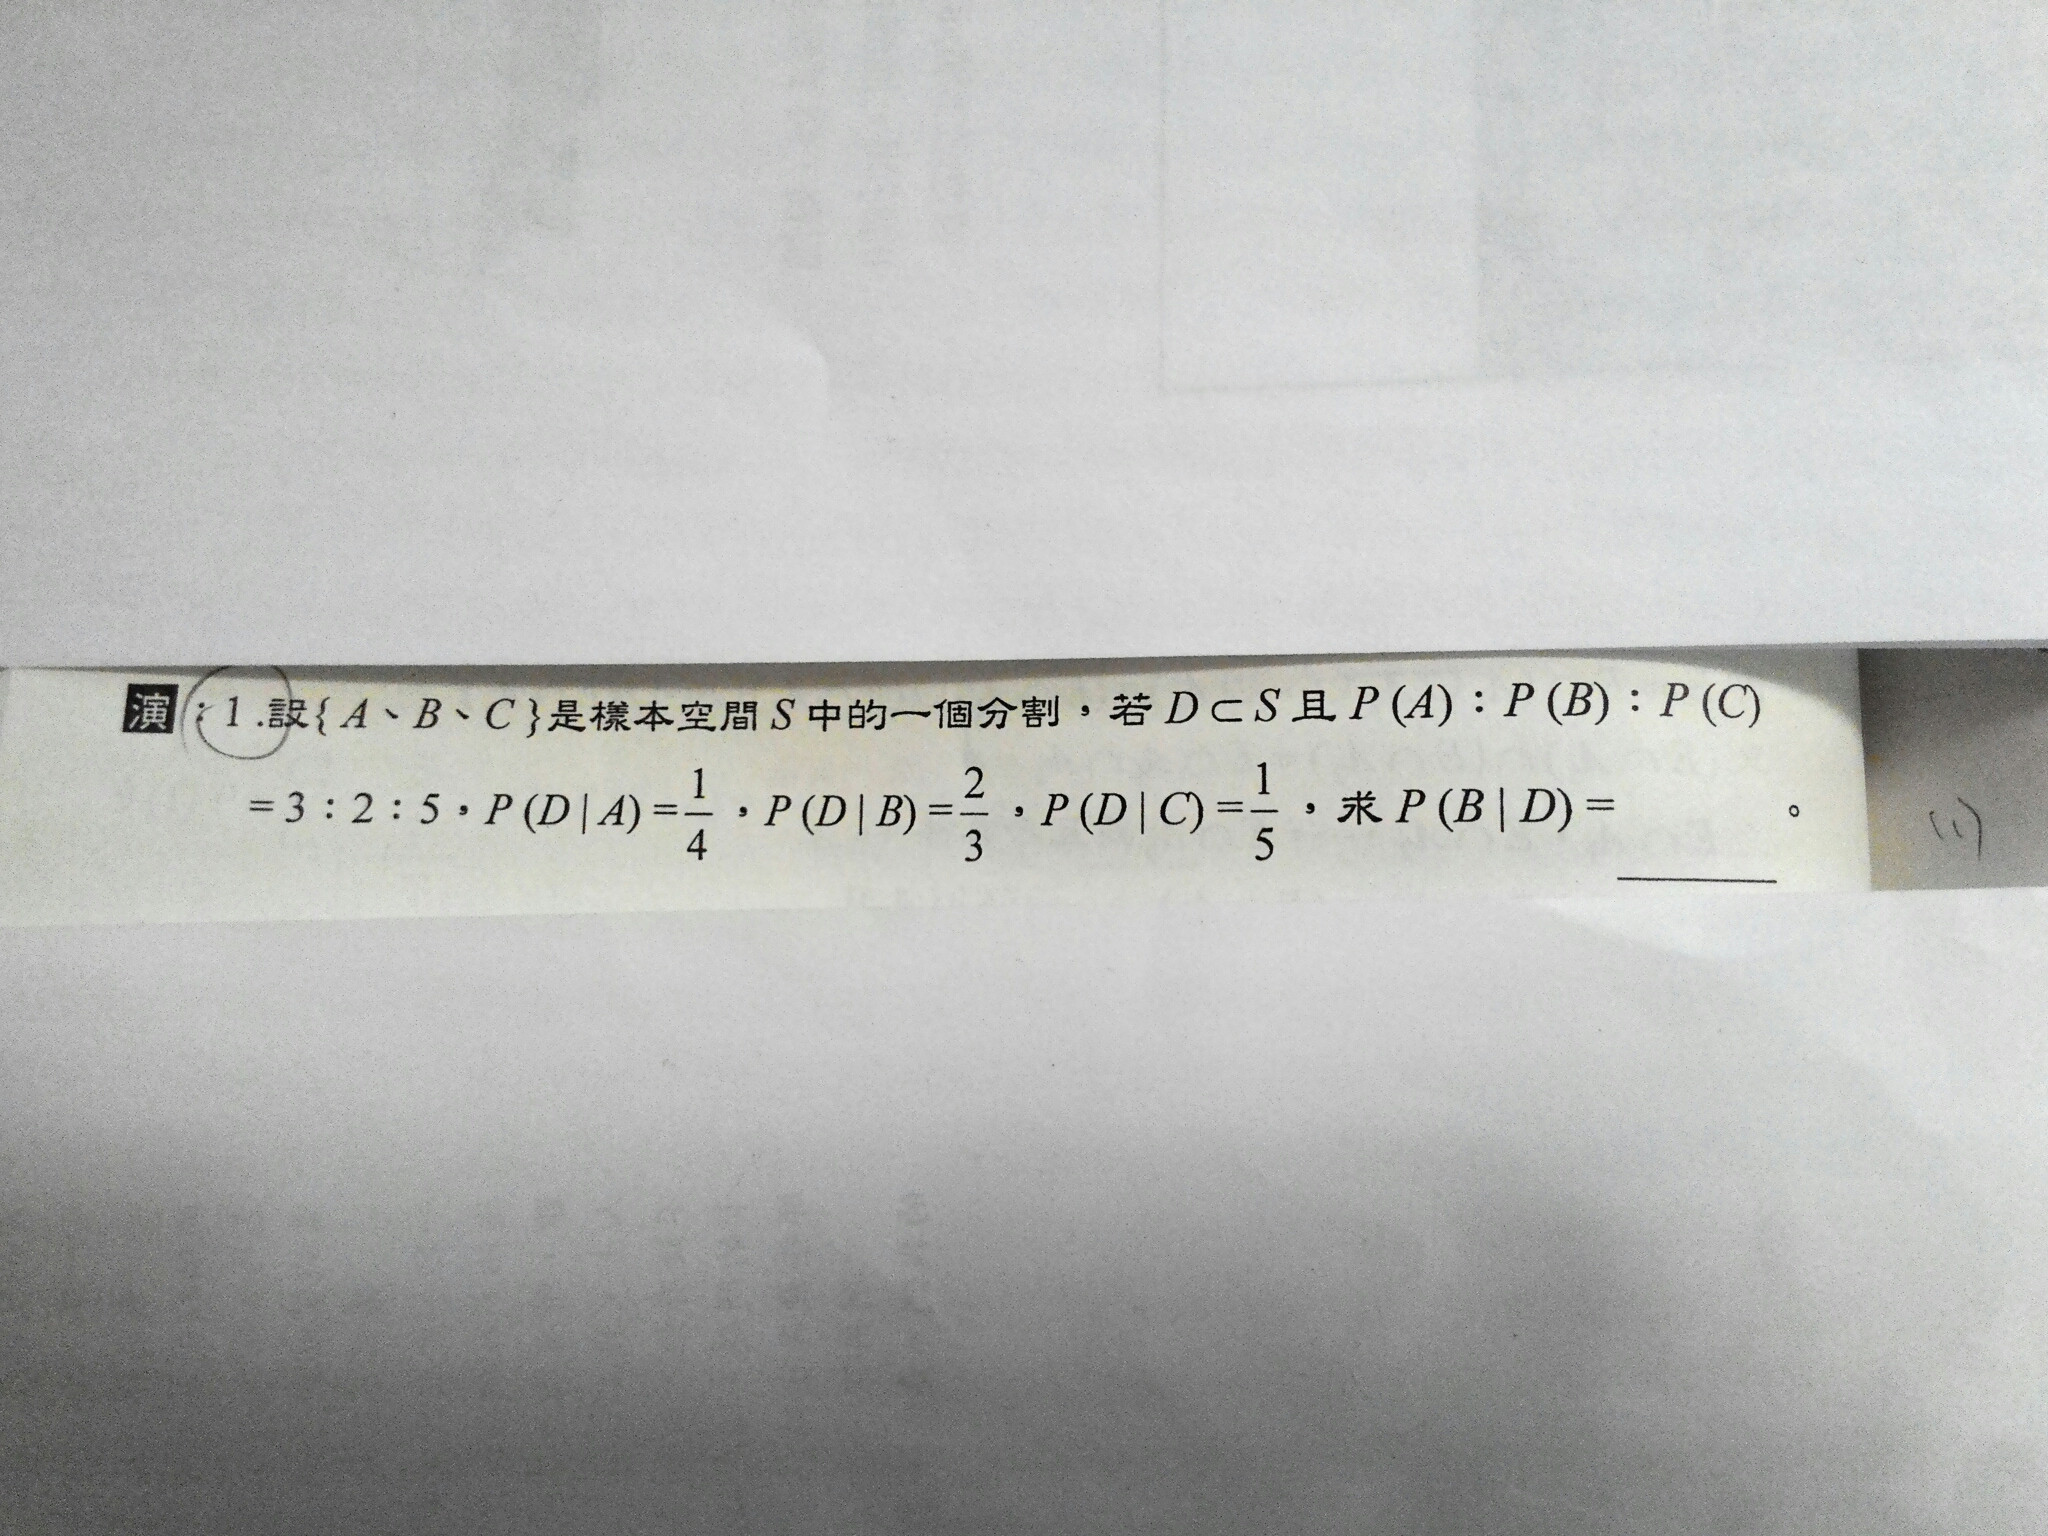 演:1.設{A、B、C}是樣本空間S中的一個分割，若D⊂S且P(A):P(B):P(C)
=3:2:5，P(D|A)=1/4，P(D|B)=2/3，P(D|C)=1/5，求P(B|D)=______。
(1)